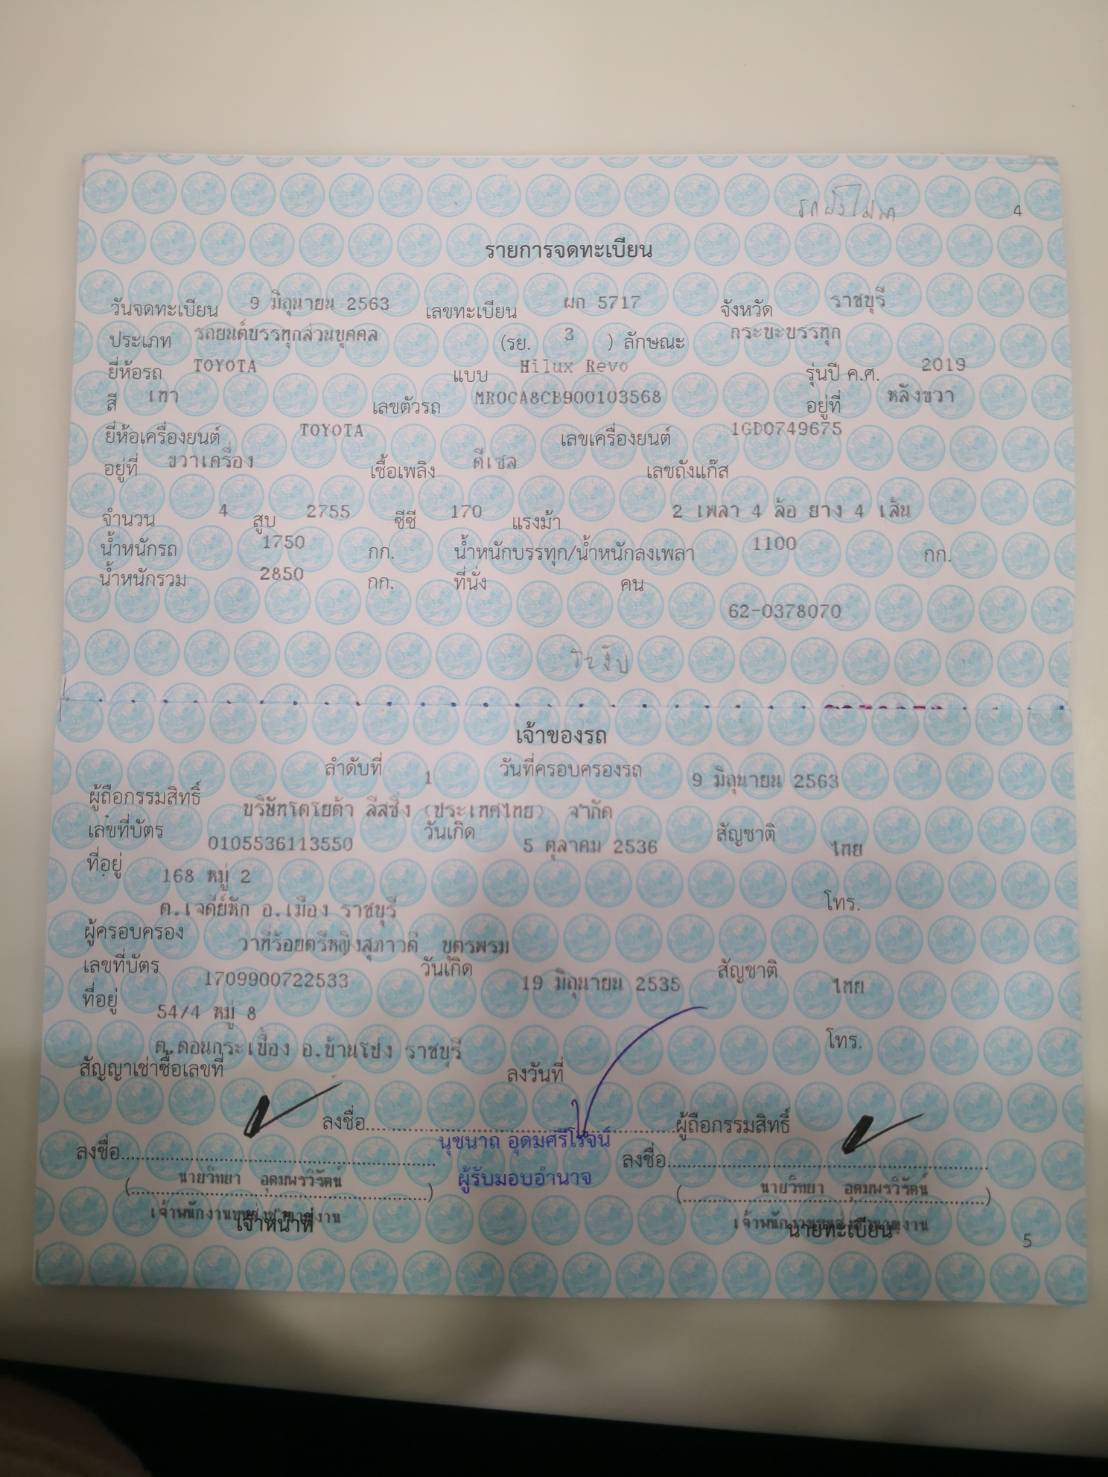 4
รายการจดทะเบียน
วันจดทะเบียน 9 มิถุนายน 2563 เลขทะเบียน ผก 5717 จังหวัด ราชบุรี
ประเภท รถยนต์บรรทุกส่วนบุคคล (รย. 3 ) ลักษณะ กระบะบรรทุก
ยี่ห้อรถ TOYOTA แบบ Hilux Revo รุ่นปี ค.ศ. 2019
สี เทา เลขตัวรถ MR0CA8CB900103568 อยู่ที่ หลังขวา
ยี่ห้อเครื่องยนต์ TOYOTA เลขเครื่องยนต์ 1GD0749675
อยู่ที่ ขวาเครื่อง เชื้อเพลิง ดีเซล เลขถังแก๊ส
จำนวน 4 สูบ 2755 ซีซี 170 แรงม้า 2 เพลา 4 ล้อ ยาง 4 เส้น
น้ำหนักรถ 1750 กก. น้ำหนักบรรทุก/น้ำหนักลงเพลา 1100 กก.
น้ำหนักรวม 2850 กก. ที่นั่ง คน
62-0378070
เจ้าของรถ
ลำดับที่ 1 วันที่ครอบครองรถ 9 มิถุนายน 2563
ผู้ถือกรรมสิทธิ์ บริษัทโตโยต้า ลีสซิ่ง (ประเทศไทย) จำกัด
เลขที่บัตร 0105536113550 วันเกิด 5 ตุลาคม 2536 สัญชาติ ไทย
ที่อยู่ 168 หมู่ 2
ต.เจดีย์หัก อ.เมือง ราชบุรี โทร.
ผู้ครอบครอง ว่าที่ร้อยตรีหญิงสุภาวดี บุตรพรม
เลขที่บัตร 1709900722533 วันเกิด 19 มิถุนายน 2535 สัญชาติ ไทย
ที่อยู่ 54/4 หมู่ 8
ต.ดอนกระเบื้อง อ.บ้านโป่ง ราชบุรี โทร.
สัญญาเช่าซื้อเลขที่ ลงวันที่
ลงชื่อ ผู้ถือกรรมสิทธิ์
นุชนาถ อุดมศรีโรจน์
ลงชื่อ ลงชื่อ
ผู้รับมอบอำนาจ
(นายวิทยา อุดมพรวิรัตน์) (นายวิทยา อุดมพรวิรัตน์)
เจ้าหน้าที่ นายทะเบียน
5